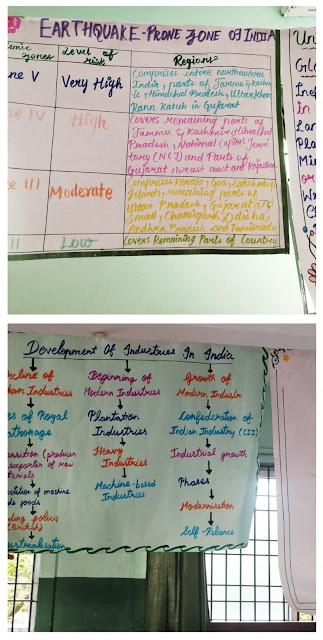 EARTHQUAKE-PRONE ZONE OF INDIA
zones
Level of
risk
Regions
V
Very High
Comprises entire northeastern
India, parts of Jammu & Kashm
Himachal Pradesh, Uttarkhan
Rann Kutch in Gujarat
IV
High
Covers remaining parts of
Jammu & Kashmir Himachal
Pradesh, National Capital Terri
tory (NCT) and Parts of
Gujarat, west coast and Rajasthan
III
Moderate
Comprises Kerala, Goa, Lakshadweep
Islands, remaining parts of
Uttar Pradesh, Gujarat and
Small, Chattisgarh, Odisha,
Andhra Pradesh and Tamilnadu
II
Low
Covers Remaining Parts of Country
Un
in
Development Of Industries In India
line of
Industries
of Royal
atronage
(producer
exporter of raw
terials
of machine
goods
policy
Beginning of
Modern Industries
Plantation
Industries
Heavy
Industries
Machine-based
Industries
Growth of
Modern Industri
Confederation of
Indian Industry (CII)
Industrial growth
Phases
Modernisation
Self-Reliance